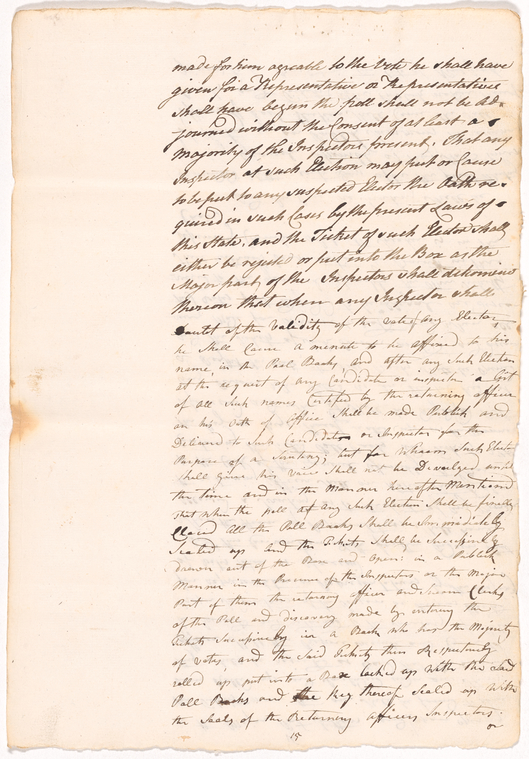 made for him agreable to the Vote he shall have
given for a Representative or Representatives
shall have begun the poll shall not be ad-
journed without the Consent of at least a
majority of the Inspectors present, That any
Inspector at such Election may put or Cause
to be put to any suspected Elector the Oath re-
quired in such Cases by the present Laws of
this State, and the Ticket of such Elector shall
either be rejected or put into the Box as the
Major part of the Inspectors shall determine
thereon that when any Inspector shall
of the validity of the vote of any Elector
he Shall Cause a minute to be affixed to his
name, in the Poal Books, and after any Such Election
at the request of any Candidate or inspector a List
of all Such names Certified by the returning officer
on his oath of office Shall be made Publick and
Delivered to Such Candidate or Inspector for the
Purpose of a Scrutiny, but for whoom Such Elector
Shall give his voice Shall not be Devulged until
the time and in the Manner hereafter Mentioned
that when the poll of any Such Election Shall be finally
Closed All the Poll Books Shall be Immediately
Sealed up and the Tickets Shall be Sucesively
drawn out of the Boxe and opened in a Publick
Manner in the Presence of the Inspectors or the Major
Part of them the returning officer and Clerks
of the Poll and discovery made by entering the
Tickets Sucesively in a Book who has the Majority
of votes, and the Said Tickets then Respectively
rolled up put into a Boxe locked up with the Said
Poll Books and the Key thereof Sealed up with
the Seals of the Returning officers Inspectors
or
15